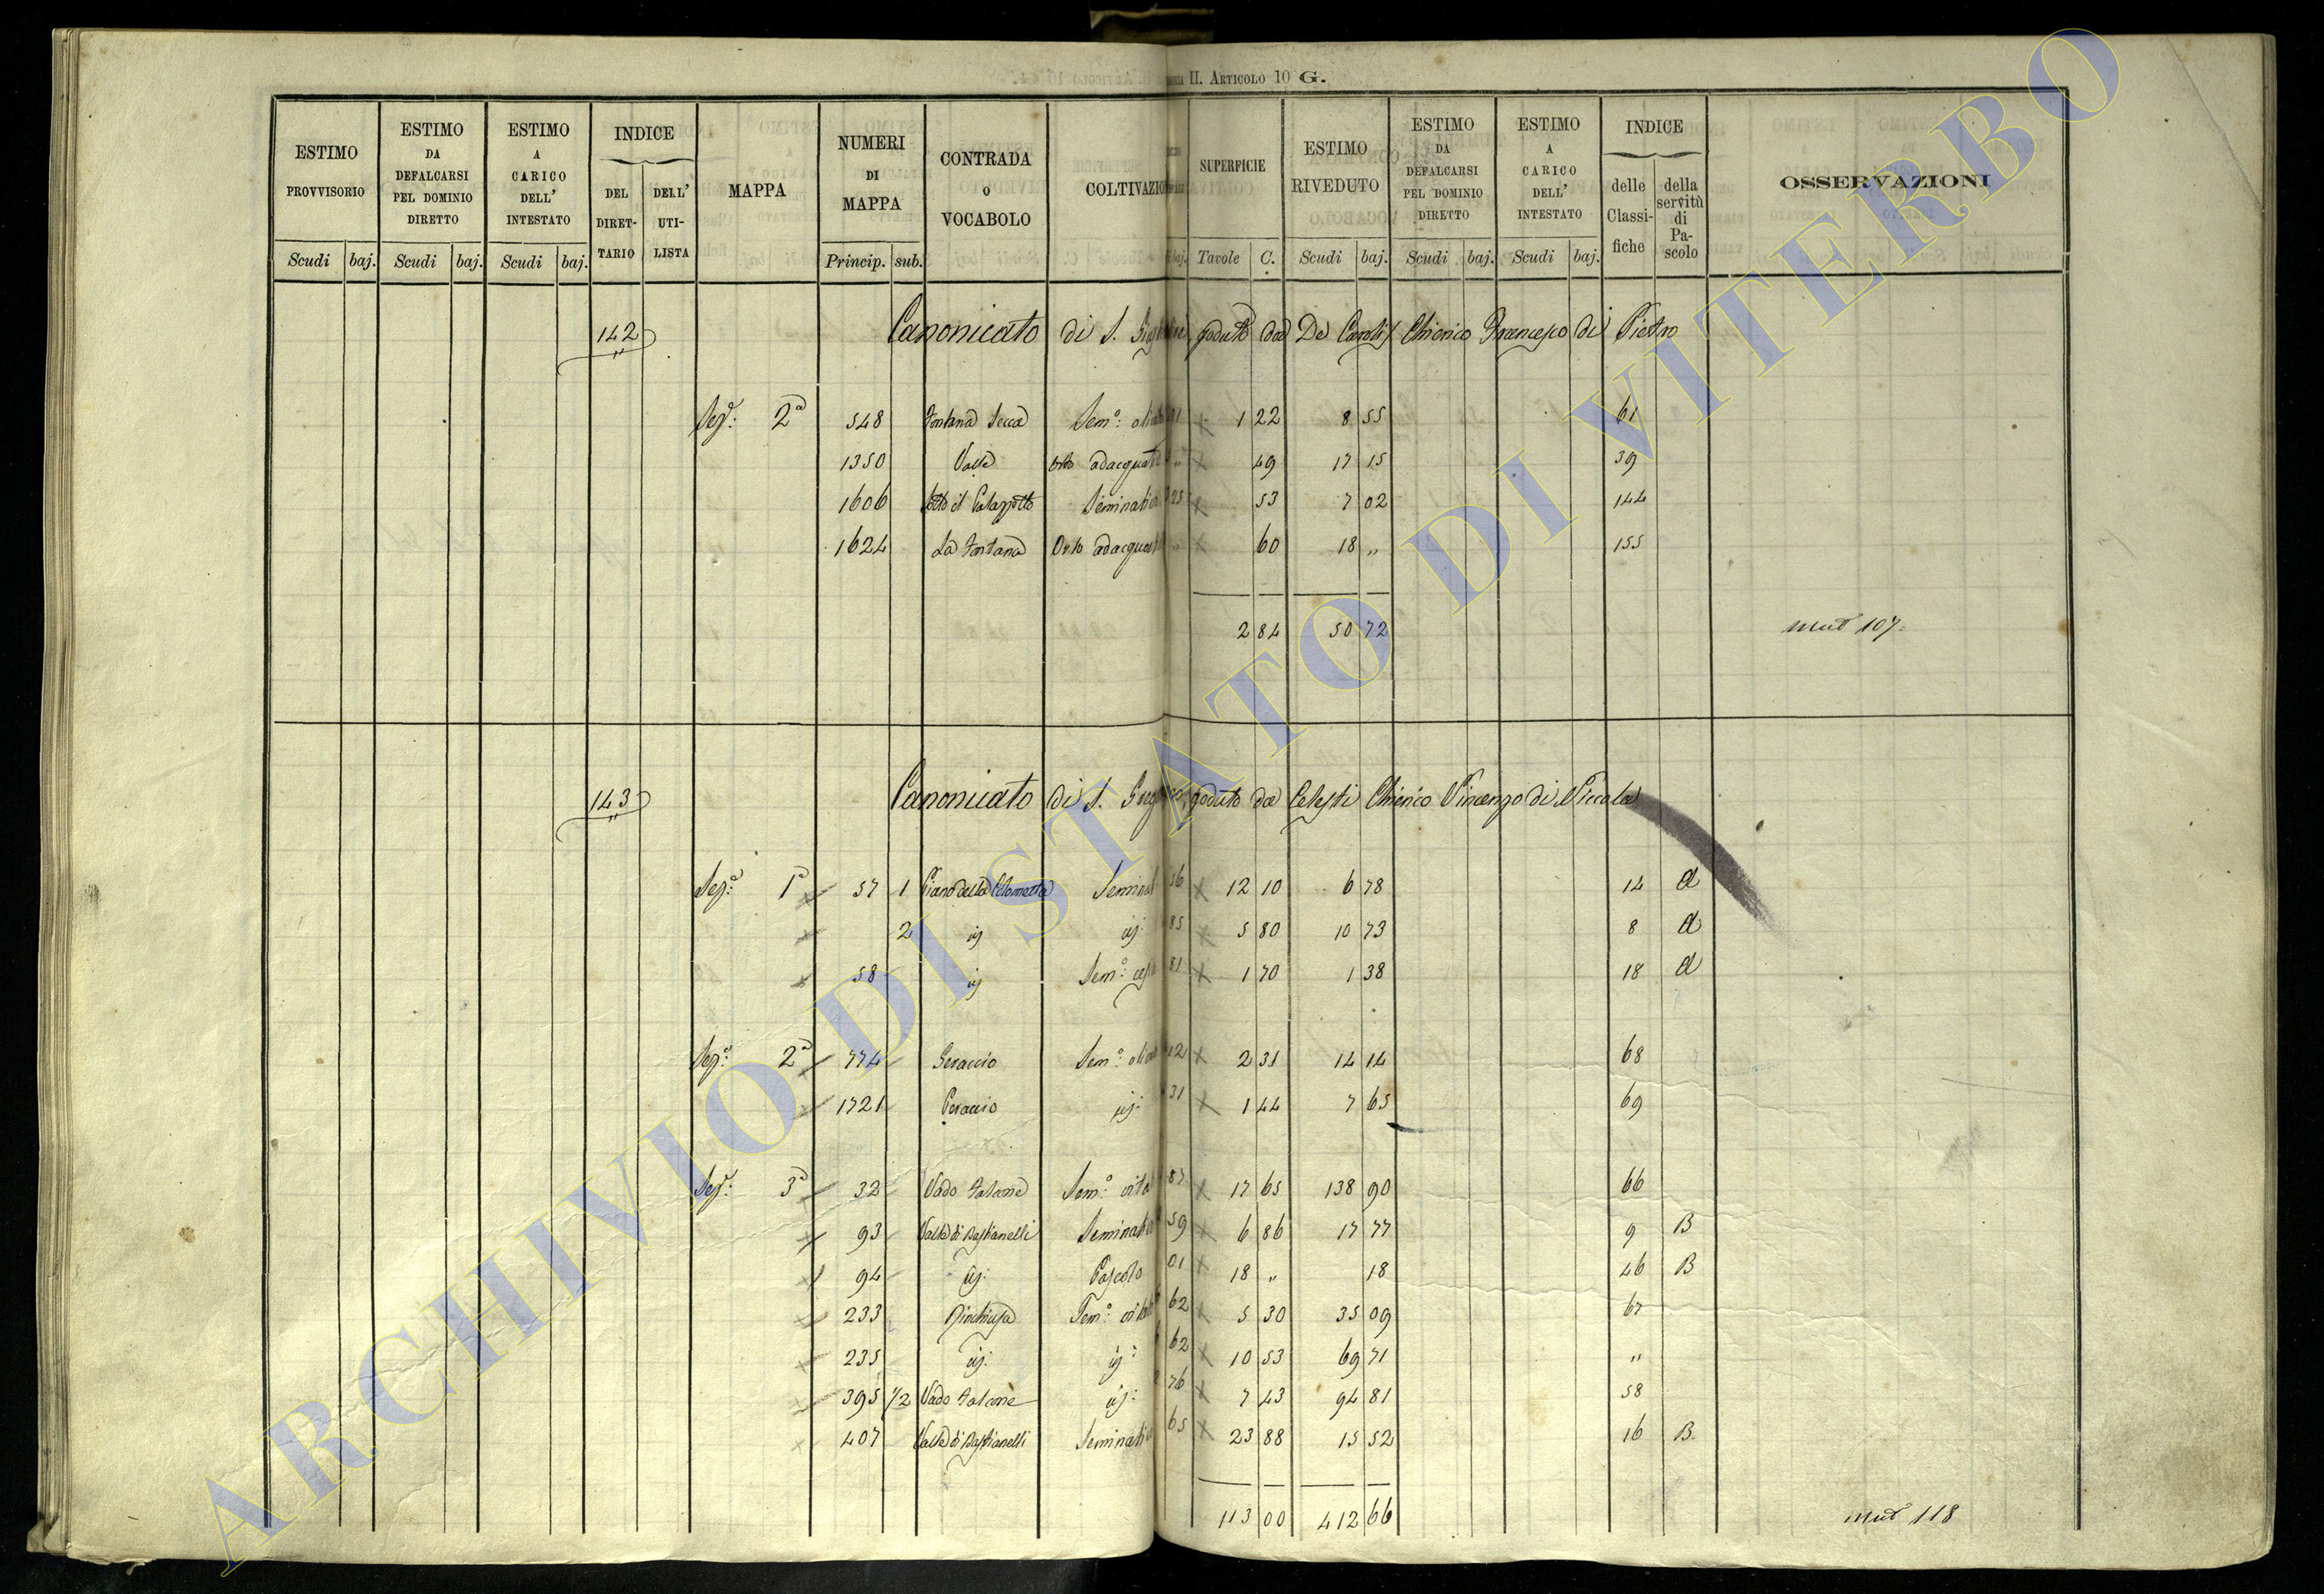 II. ARTICOLO 10 G.
ESTIMO PROVVISORIO | ESTIMO DA DEFALCARSI PEL DOMINIO DIRETTO | ESTIMO A CARICO DELL' INTESTATO | INDICE DEL DIRETTARIO | DELL' UTILISTA | MAPPA | NUMERI DI MAPPA | CONTRADA O VOCABOLO | COLTIVAZION | SUPERFICIE | ESTIMO RIVEDUTO | ESTIMO DA DEFALCARSI PEL DOMINIO DIRETTO | ESTIMO A CARICO DELL' INTESTATO | INDICE delle Classifiche | della servitù di Pascolo | OSSERVAZIONI
Scudi baj. Scudi baj. Scudi baj. Princip. sub. baj. Tavole C. Scudi baj. Scudi baj. Scudi baj.
142 Canonicato di S. goduto da De Carolis Chierico Francesco di Pietro
Sez.e 2a 548 Fontana Secca Sem.o 1 22 8 55 61
1350 Valle Orto adacquat „ 49 17 15 39
1606 Sotto il Palazzetto Seminati 25 53 7 02 144
1624 La Fontana Orto adacquat „ 60 18 „ 155
2 84 50 72 mut 107.
143 Canonicato di S. Greg goduto da Celesti Chierico Vincenzo di Niccola
Sez.e 1a 57 1 Piano della Seminat 56 12 10 6 78 14 A
2 id id. 85 5 80 10 73 8 A
58 id Sem.o 81 1 70 1 38 18 A
Sez.e 2a 774 Sem.o 2 31 14 14 68
1721 Peraccio id. 31 1 44 7 65 69
Sez.e 3a 32 Vado Sem.o vitat 87 17 65 138 90 66
93 Valle di Bastianelli Seminati 59 6 86 17 77 9 B
94 id. Pascolo 01 18 „ 18 46 B
233 Rinchiusa Sem.o vitat 62 5 30 35 09 67
235 id. id. 62 10 53 69 71 "
395 1/2 Vado id. 76 7 43 94 81 58
407 Valle di Bastianelli Seminati 65 23 88 15 52 16 B.
113 00 412 66 mut 118
ARCHIVIO DI STATO DI VITERBO